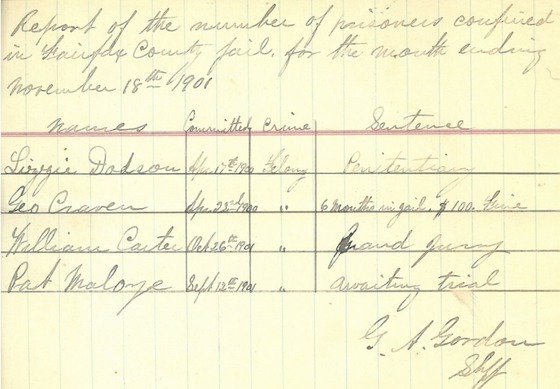 Report of the number of prisoners confined
in Fairfax County jail. for the month ending
November 18th 1901
Names Committed Crime Sentence
Lizzie Dodson 17th 1900 Felony Penitentiary
Geo Craven 22nd 1900 " 6 months in jail. $100. Fine
William Carter Oct 26th 1901 " Grand jury
Pat Maloye Sept 12th 1901 " Awaiting trial
G. A. Gordon
Shff